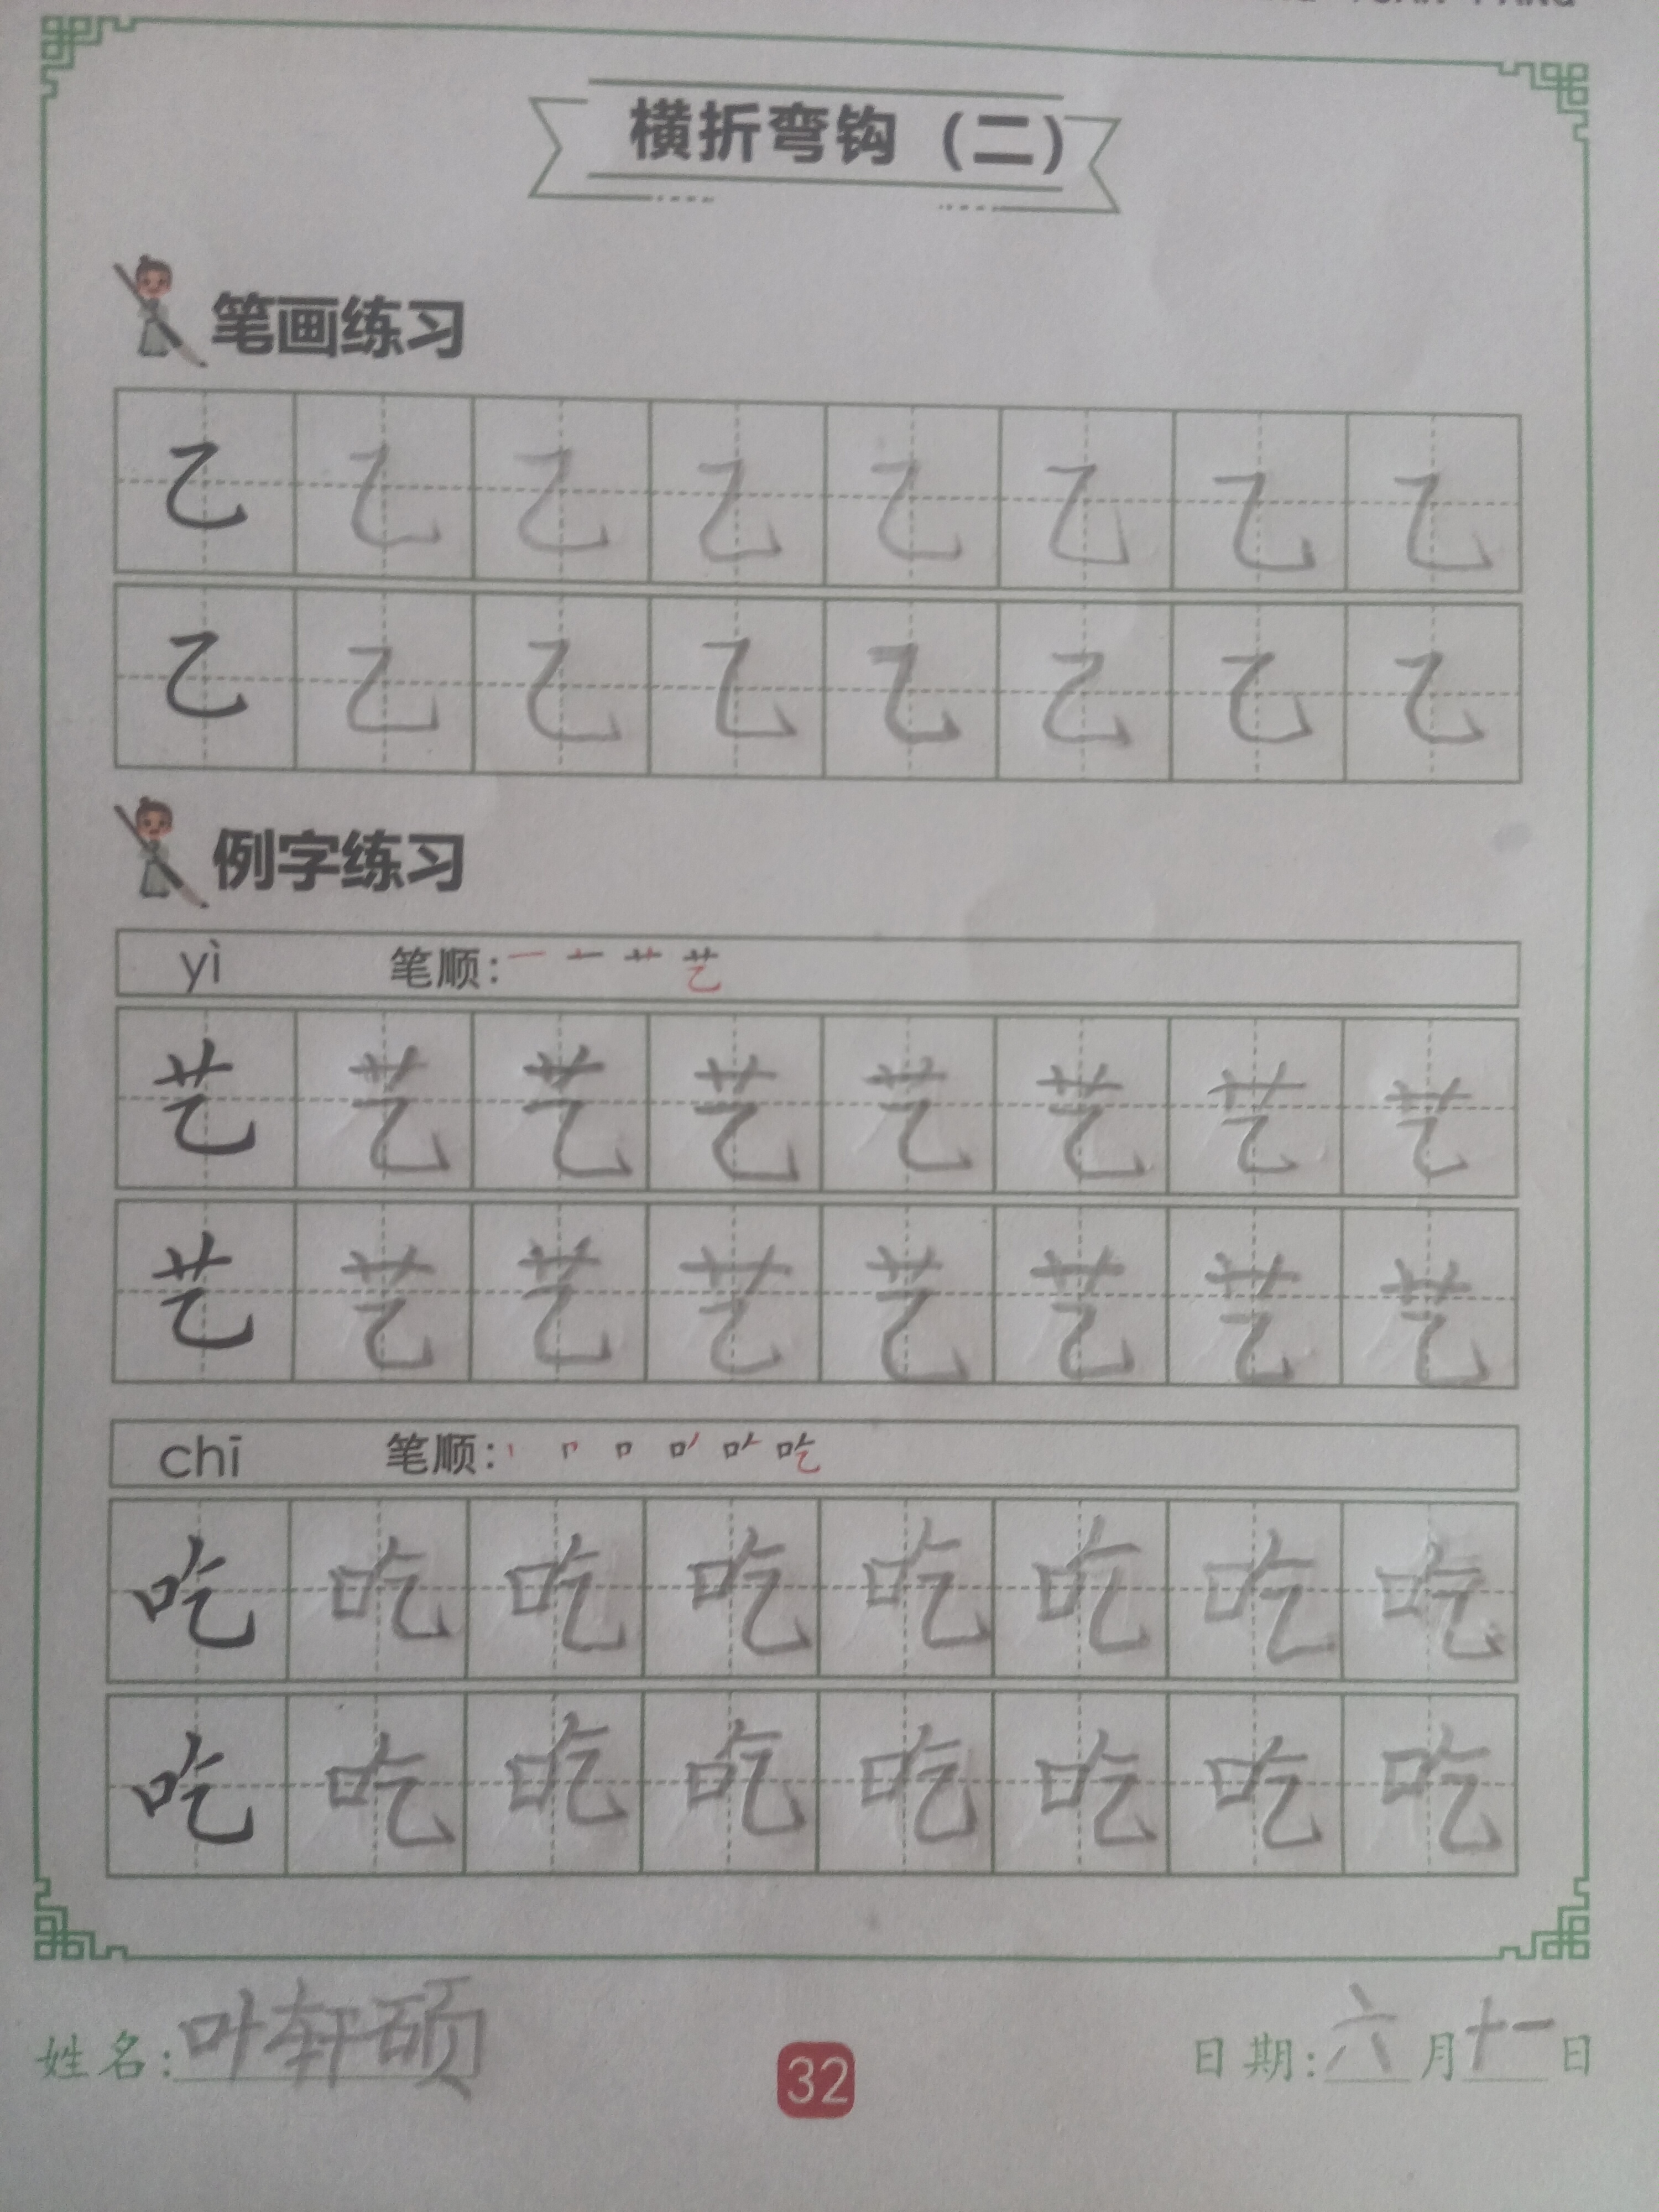 横折弯钩（二）
笔画练习
乙 乙 乙 乙 乙 乙 乙 乙
乙 乙 乙 乙 乙 乙 乙 乙
例字练习
yì 笔顺: 一 艺
艺 艺 艺 艺 艺 艺 艺 艺
艺 艺 艺 艺 艺 艺 艺 艺
chī 笔顺: 丨 口 吃
吃 吃 吃 吃 吃 吃 吃 吃
吃 吃 吃 吃 吃 吃 吃 吃
姓名: 叶轩硕 32 日期: 六月十一日